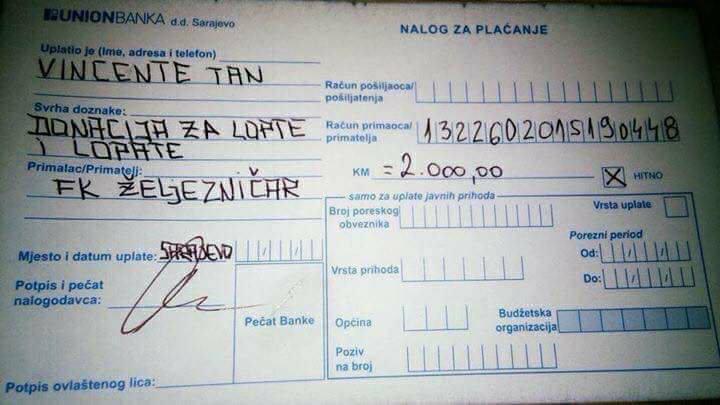 UNIONBANKA d.d. Sarajevo
NALOG ZA PLAĆANJE
Uplatio je (Ime, adresa i telefon)
VINCENTE TAN
Svrha doznake:
DONACIJA ZA LOPTE
I LOPATE
Primalac/Primatelj:
FK ŽELJEZNIČAR
Mjesto i datum uplate: SARAJEVO
Potpis i pečat
nalogodavca:
Pečat Banke
Potpis ovlaštenog lica:
Račun pošiljaoca/
pošiljatenja
Račun primaoca/
primatelja
1322602015190448
KM = 2.000,00
X HITNO
samo za uplate javnih prihoda
Broj poreskog
obveznika
Vrsta uplate
Porezni period
Od:
Do:
Vrsta prihoda
Općina
Budžetska
organizacija
Poziv
na broj